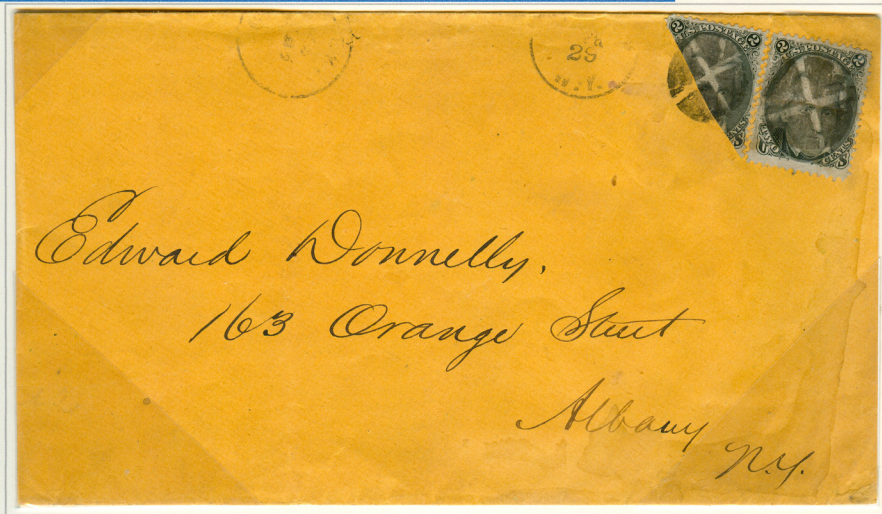 25
N.Y.
2 U.S. POSTAGE 2
2 U.S. POSTAGE 2
Edward Donnelly,
163 Orange Street
Albany
N.Y.